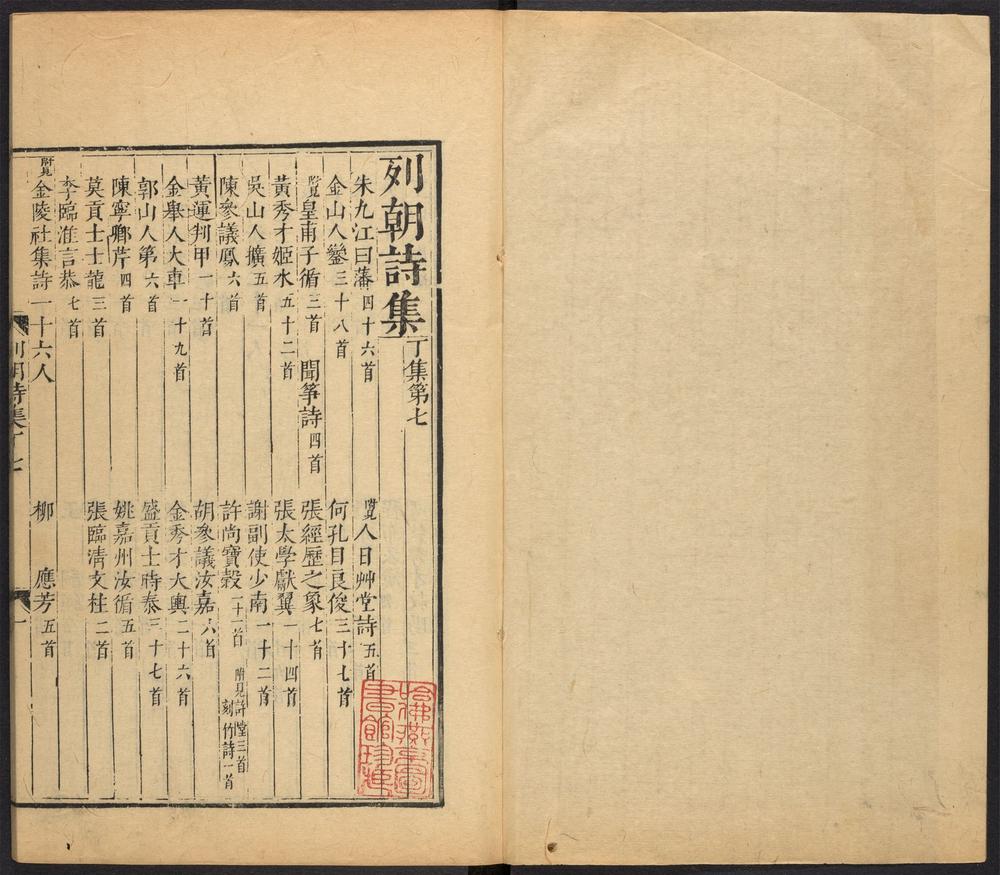 列朝詩集 丁集第七
朱九江曰藩四十六首 附見人日艸堂詩五首
金山人鑾三十八首 何孔目良俊三十七首
附見皇甫子循三首 聞箏詩四首 張經歷之象七首
黃秀才姬水五十二首 張太學獻翼一十四首
吳山人擴五首 謝副使少南一十二首
陳參議鳳六首 許尚寶穀二十一首 附見許堂三首 刻竹詩一首
黃運判甲一十首 胡參議汝嘉六首
金舉人大車一十九首 金秀才大輿二十六首
郭山人第六首 盛貢士時泰三十七首
陳寧鄉芹四首 姚嘉州汝循五首
莫貢士士龍三首 張臨清文柱二首
李臨淮言恭七首
附見金陵社集詩一十六人 柳應芳五首
列朝詩集丁七 一
哈佛燕京圖書館珍藏